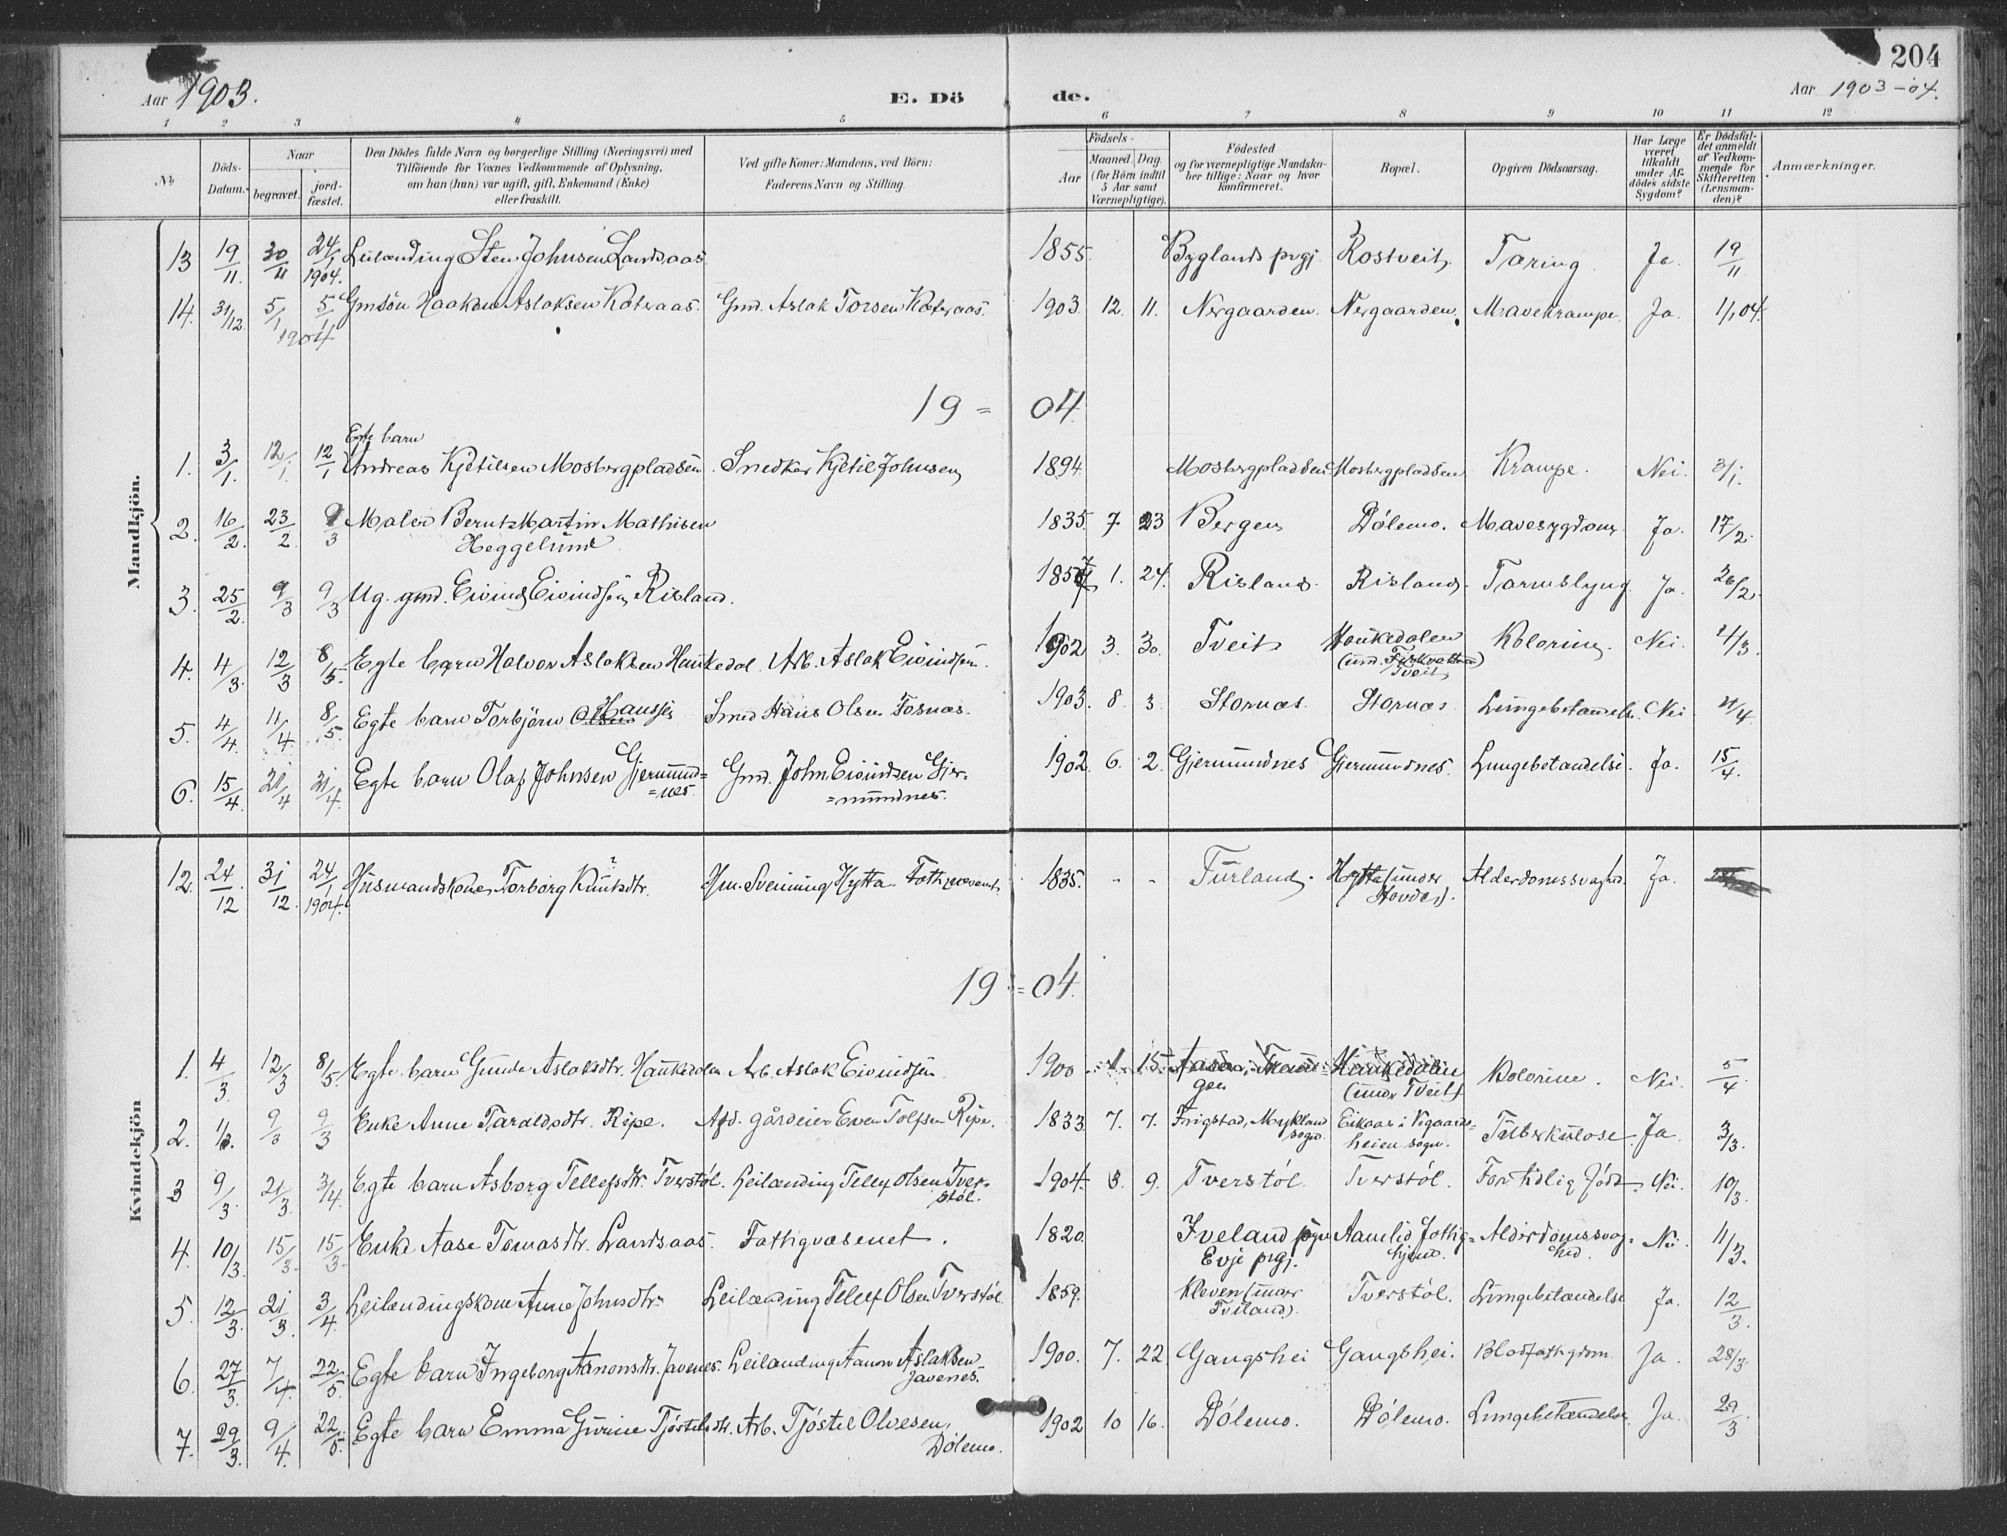 204
Aar 1903. E. Dö de. Aar 1903-04.
1 2 3 4 5 6 7 8 9 10 11 12
№ Döds-Datum. Naar begravet. jord-fæstet. Den Dödes fulde Navn og borgerlige Stilling (Næringsvei) med Tilföiende for Voxnes Vedkommende af Oplysning, om han (hun) var ugift, gift, Enkemand (Enke) eller fraskilt. Ved gifte Koner: Mandens, ved Börn: Faderens Navn og Stilling. Födsels- Aar Maaned Dag. (for Börn indtil 5 Aar samt Værnepligtige). Födested og for værnepligtige Mandskaber tillige: Naar og hvor konfirmeret. Bopæl. Opgiven Dödsaarsag. Har Læge været tilkaldt under Afdödes sidste Sygdom? Er Dödsfaldet anmeldt af Vedkommende for Skifteretten (Lensmanden)? Anmærkninger.
Mandkjön.
13 19/11 30/11 24/1 1904. Leilænding Sten Johnsen Landsaas. 1855. Byglands prgj. Rostveit. Tæring. Ja. 19/11
14. 31/12 5/1 5/1 1904 Gmsøn Haakon Aslaksen Kateraas. Gmd. Aslak Torsen Kateraas. 1903. 12. 11. Nergaarden. Nergaarden. Mavekrampe. Ja. 1/1 04.
19 = 04
1. 3/1. 12/1. 12/1 Egte barn Andreas Kjetilsen Mosbergpladsen. Snedker Kjetil Johnsen 1894. Mosbergpladsen Mosbergpladsen Krampe. Nei. 3/1.
2. 16/2. 23/2 9/3 Maler Bernt Martin Mathisen Heggelund 1835 7 23 Bergen Dölemo. Mavesygdom. Ja. 17/2.
3. 25/2 9/3 9/3 Ug. gmd. Eivind Eivindsen Risland. 1857 1. 24. Risland. Risland. Tarmslyng. Ja. 26/2.
4. 4/3. 12/3 8/5. Egte barn Halvor Aslaksen Haukedal. Arb. Aslak Eivindsen. 1902 3. 30. Tveit Haukedalen (und. Tveit) Kolerine. Nei. 4/3.
5. 4/4. 11/4. 8/5. Egte barn Torbjörn Hanssen Smed Hans Olsen Fosnæs. 1903. 8. 3. Stornæs. Stornæs Lungebetændelse. Nei 4/4.
6. 15/4. 21/4 21/4. Egte barn Olaf Johnsen Gjermund= =nes. Gmd. John Eivindsen Gjer= =mundnes. 1902. 6. 2. Gjermundnes Gjermundnes. Lungebetændelse. Ja. 15/4.
Kvindekjön
12. 24/12 31/12. 24/1 1904. Husmandskone Torborg Knutsdtr. Hm. Svenning Hytta. Fattigvæsent. 1835. - - Furland. Hytta (under Hovde). Alderdomssvaghed. Ja.
19 = 04.
1. 4/3 12/3 8/5. Egte barn Gunda Aslaksdtr. Haukedalen Arb. Aslak Eivindsen. 1900 1 15 Haukedalen (under Tveit) Kolerine. Nei. 5/4
2. 1/3. 9/3 9/3 Enke Anne Taraldsdtr. Ripe. Afd. gårdeier Even Tolfsen Ripe. 1833 7. 7. Frigstad, Mykland sogn. Eikaas i Vegaards= heien sogn. Tuberkulose Ja. 3/3.
3 9/3 21/3. 3/4. Egte barn Asborg Tellefsdtr. Tverstöl. Leilænding Tellef Olsen Tver= stöl. 1904. 3. 9. Tverstöl. Tverstöl. For tidlig född. Nei. 10/3.
4. 10/3. 15/3. 15/3 Enke Aase Tomasdtr. Landsaas. Fattigvæsenet. 1820. Iveland sogn Evje prgj. Aamlid fattig= hjem. Alderdomssvag= hed. Nei. 11/3.
5. 12/3. 21/3. 3/4. Leilændingskone Anne Johnsdtr. Leilænding Tellef Olsen Tverstöl 1859. Kleven (under Tveiland). Tverstöl. Lungebetændelse Ja. 12/3.
6. 27/3 7/4. 22/5. Egte barn Ingeborg Aanonsdtr. Javenes. Leilænding Aanon Aslaksen Javenes. 1900. 7. 22 Gangshei Gangshei. Blodfattigdom Ja. 28/3.
7. 29/3. 9/4. 22/5. Egte barn Emma Gurine Tjöstelsdtr. Arb. Tjöstel Olsen, Dölemo. 1902 10 16. Dölemo. Dölemo. Lungebetændelse Ja. 29/3